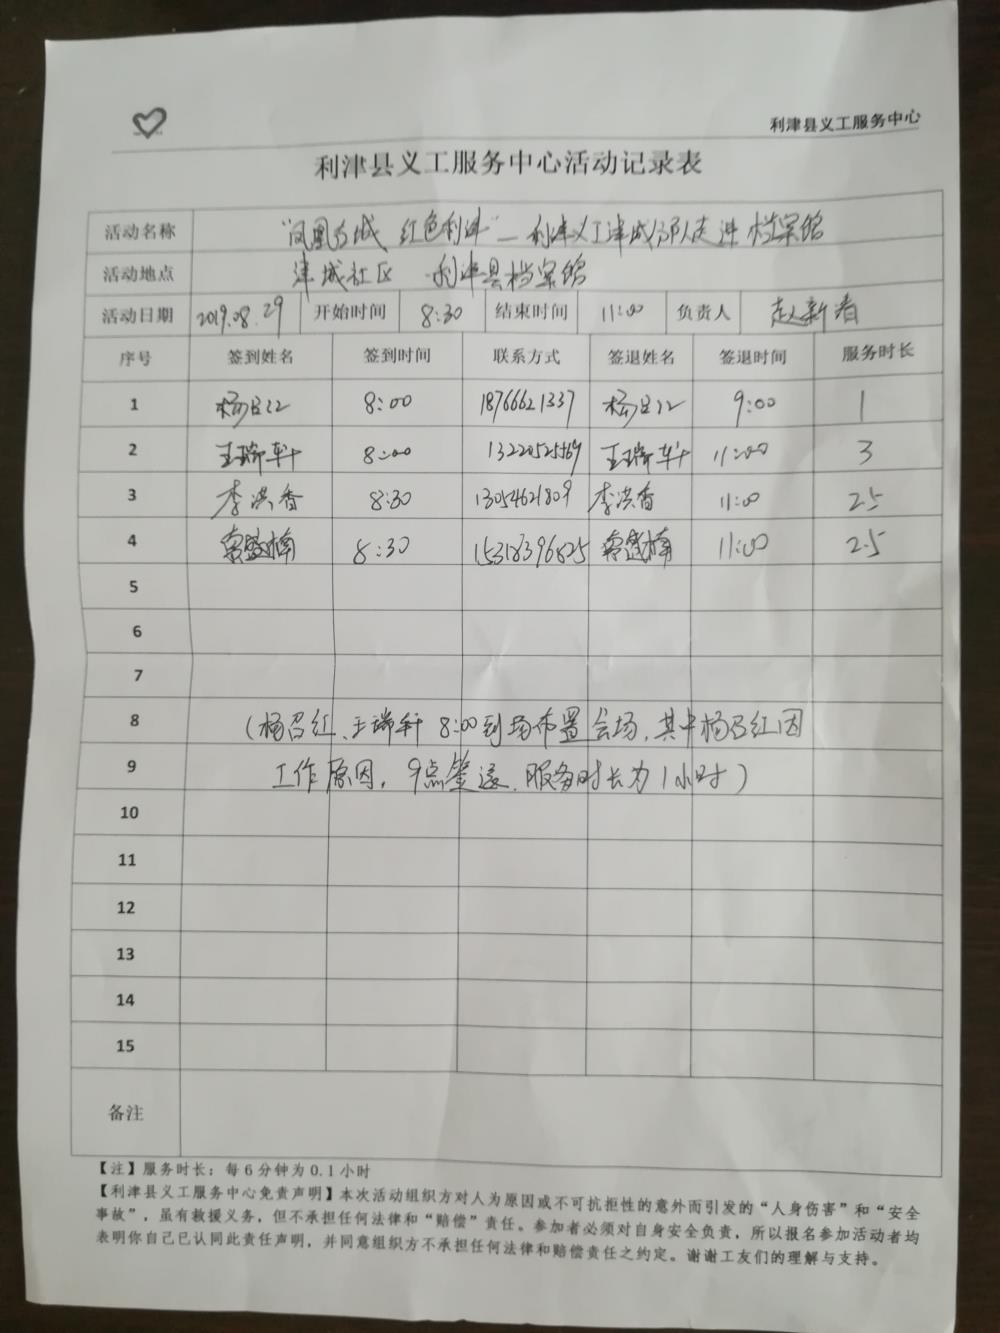 利津县义工服务中心
利津县义工服务中心活动记录表
活动名称 “凤凰古城 红色利津”—利津义工津城分队走进档案馆
活动地点 津城社区 利津县档案馆
活动日期 2019.08.29 开始时间 8:30 结束时间 11:00 负责人 赵新春
序号 签到姓名 签到时间 联系方式 签退姓名 签退时间 服务时长
1 杨召红 8:00 18766621337 杨召红 9:00 1
2 王瑞轩 8:00 13220525569 王瑞轩 11:00 3
3 李洪香 8:30 13054621809 李洪香 11:00 2.5
4 8:30 15318396825 11:00 2.5
5
6
7
8 (杨召红、王瑞轩 8:00到场布置会场,其中杨召红因
9 工作原因,9点签退,服务时长为1小时)
10
11
12
13
14
15
备注
【注】服务时长:每6分钟为0.1小时
【利津县义工服务中心免责声明】本次活动组织方对人为原因或不可抗拒性的意外而引发的“人身伤害”和“安全
事故”,虽有救援义务,但不承担任何法律和“赔偿”责任。参加者必须对自身安全负责,所以报名参加活动者均
表明你自己已认同此责任声明,并同意组织方不承担任何法律和赔偿责任之约定。谢谢工友们的理解与支持。